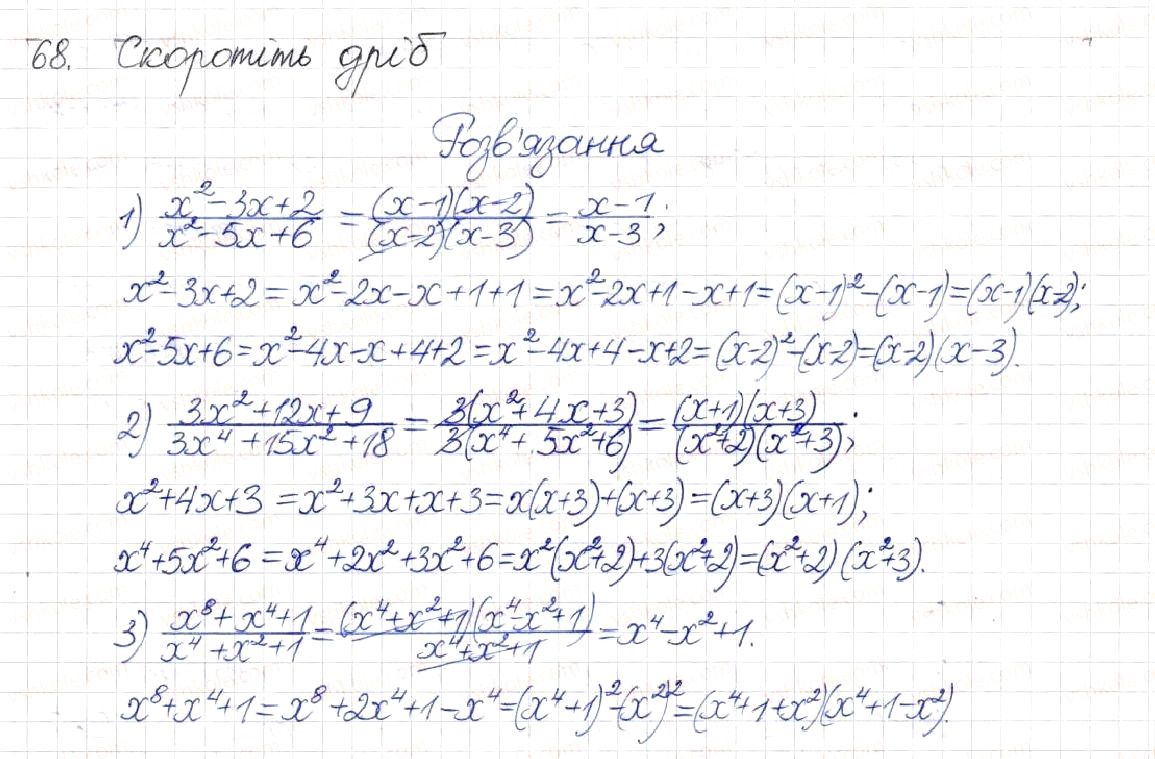 68. Скоротіть дріб
Розв'язання
1) \frac{x^2-3x+2}{x^2-5x+6} = \frac{(x-1)(x-2)}{(x-2)(x-3)} = \frac{x-1}{x-3};
x^2-3x+2=x^2-2x-x+1+1=x^2-2x+1-x+1=(x-1)^2-(x-1)=(x-1)(x-2);
x^2-5x+6=x^2-4x-x+4+2=x^2-4x+4-x+2=(x-2)^2-(x-2)=(x-2)(x-3).
2) \frac{3x^2+12x+9}{3x^4+15x^2+18} = \frac{3(x^2+4x+3)}{3(x^4+5x^2+6)} = \frac{(x+1)(x+3)}{(x^2+2)(x^2+3)};
x^2+4x+3=x^2+3x+x+3=x(x+3)+(x+3)=(x+3)(x+1);
x^4+5x^2+6=x^4+2x^2+3x^2+6=x^2(x^2+2)+3(x^2+2)=(x^2+2)(x^2+3).
3) \frac{x^8+x^4+1}{x^4+x^2+1} = \frac{(x^4+x^2+1)(x^4-x^2+1)}{x^4+x^2+1} = x^4-x^2+1.
x^8+x^4+1=x^8+2x^4+1-x^4=(x^4+1)^2-(x^2)^2=(x^4+1+x^2)(x^4+1-x^2).